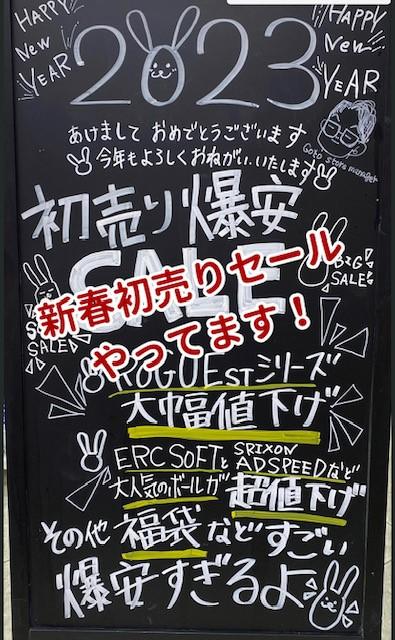 HAPPY New YEAR
2023
HAPPY New YEAR
あけまして おめでとうございます
今年もよろしくおねがいいたします
Goto store manager
初売り爆安
SALE
BIG SALE!
SALE
新春初売りセール
やってます！
ROGUE STシリーズ
大幅値下げ
ERC SOFTと SRIXON ADSPEEDなど
大人気のボールが 超値下げ
その他 福袋などすごい
爆安すぎるよ